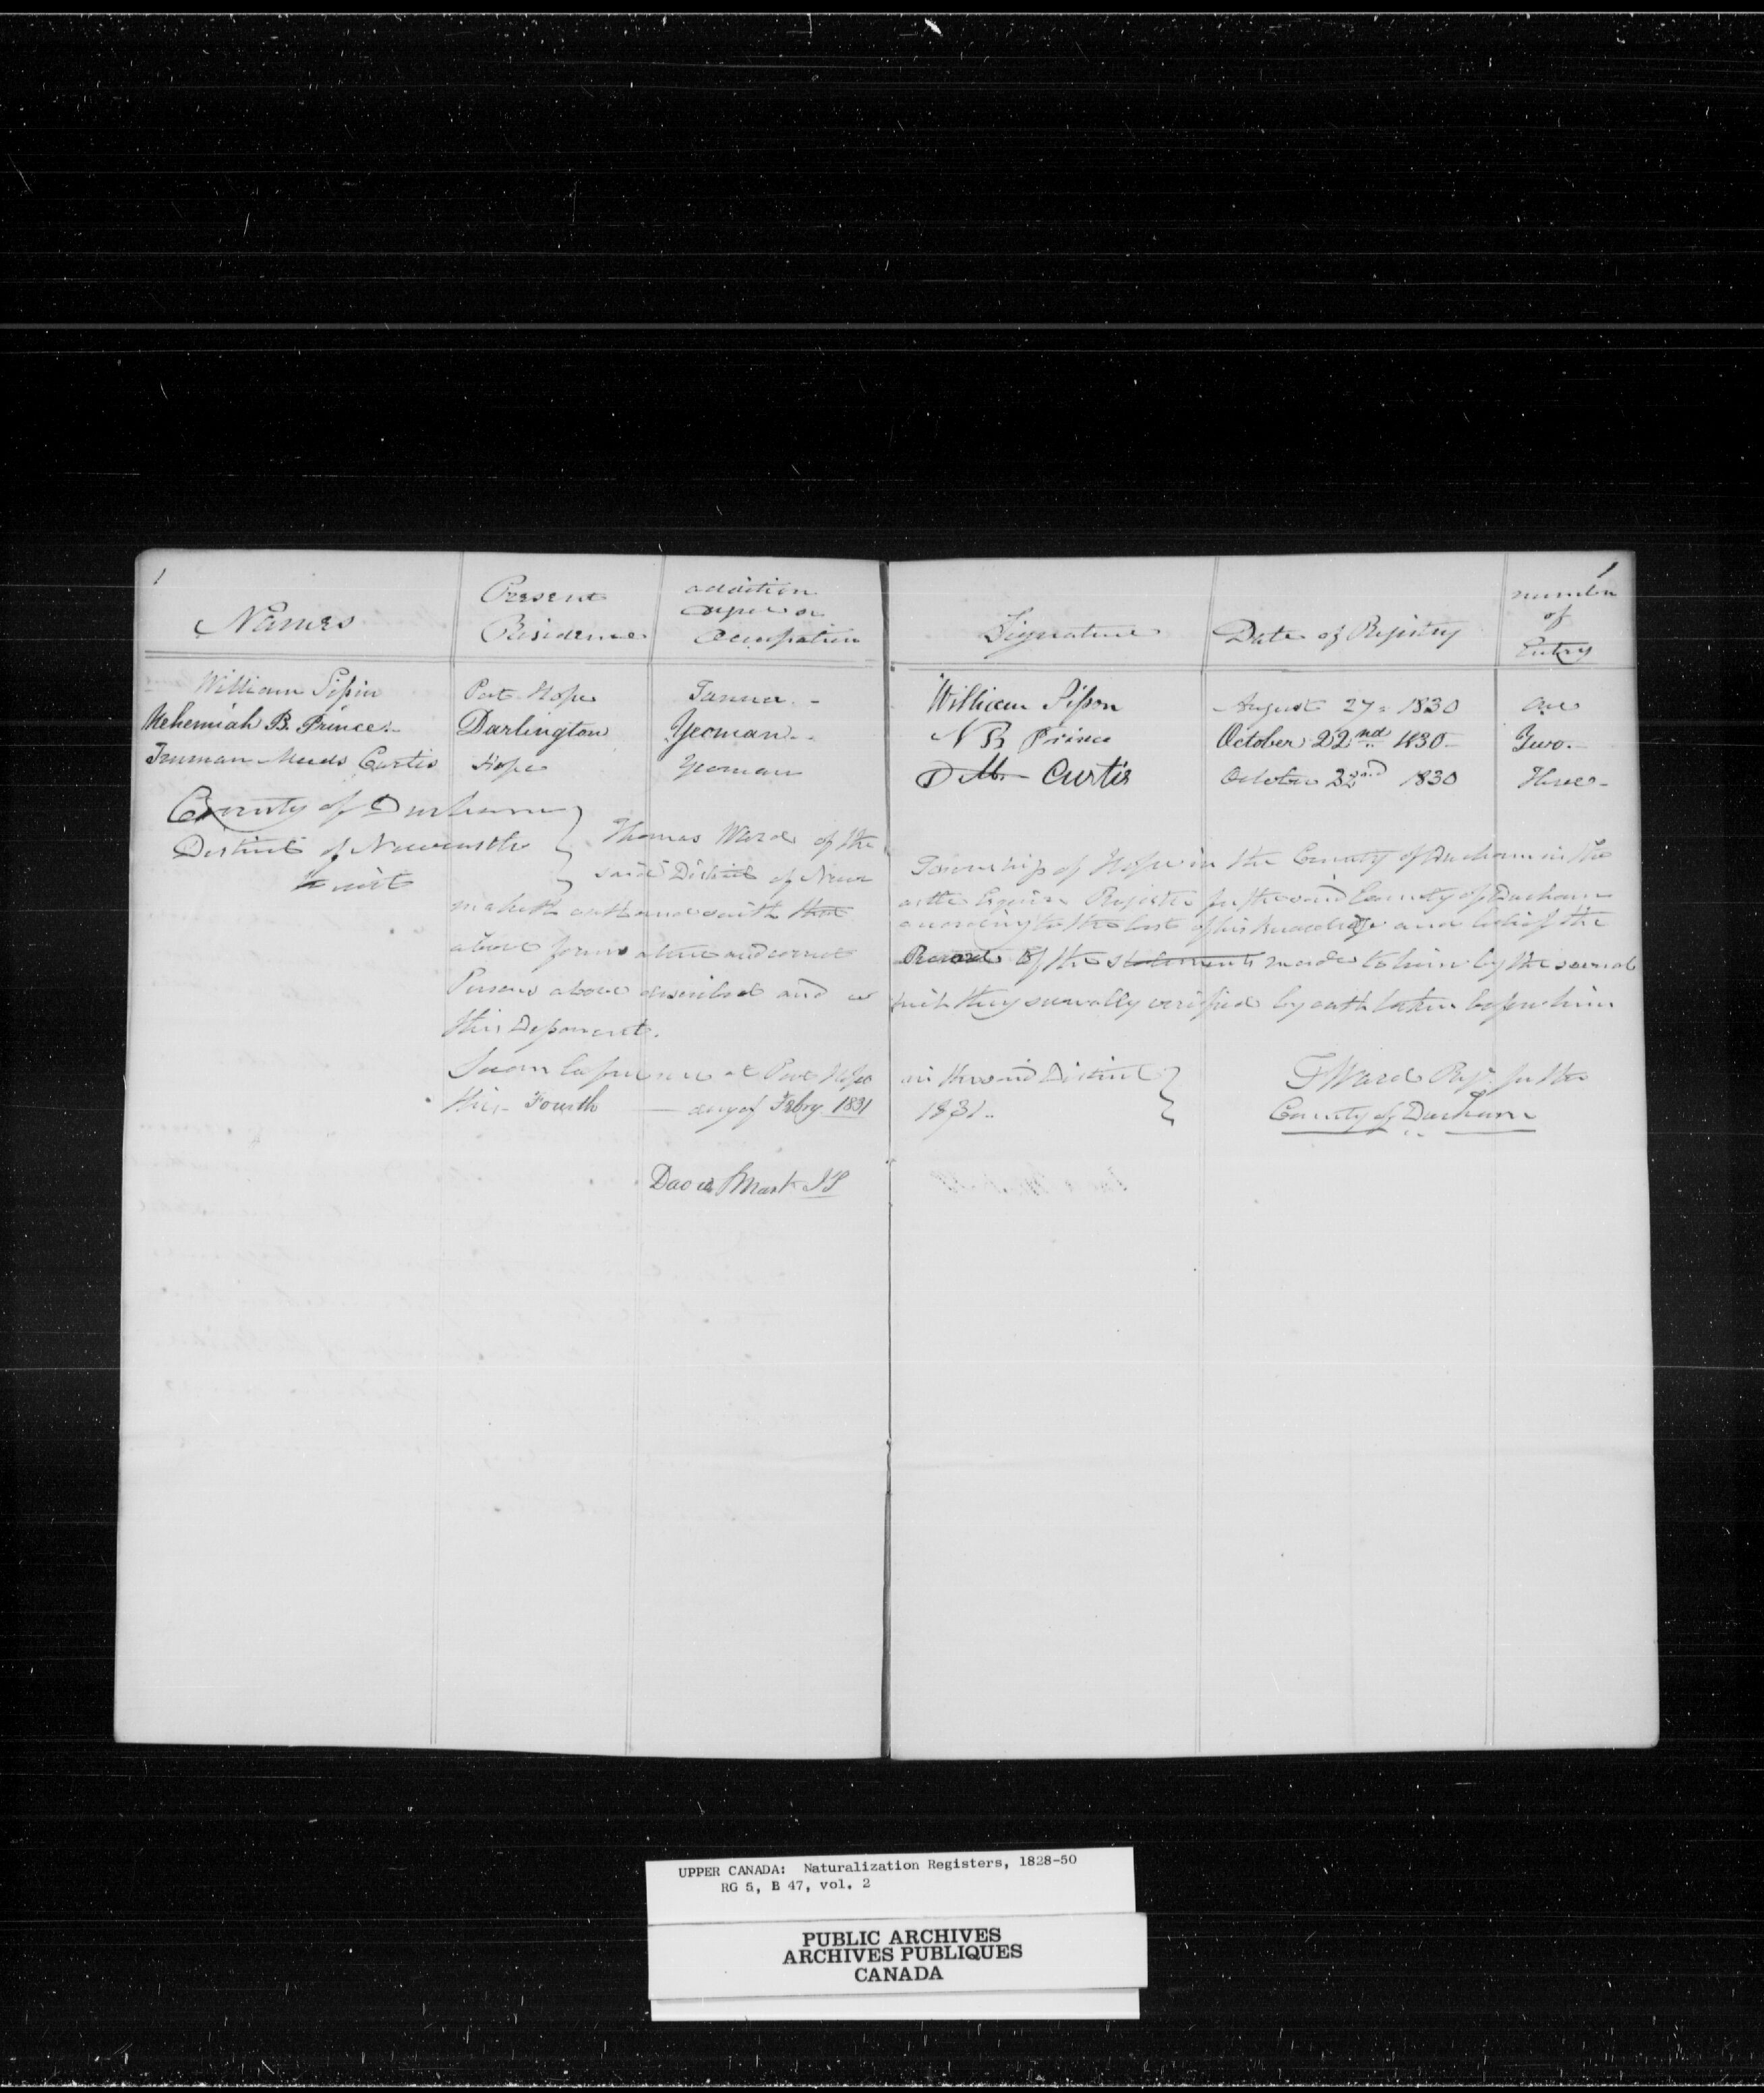 1
Names
Present Residence
addition degree or Occupation
Signature
Date of Registry
number of Entry
1
William Sisson Port Hope Tanner - William Sisson August 27 = 1830 One
Nehemiah B. Prince - Darlington Yeoman - N B Prince October 22nd 1830 - Two -
Truman Meeds Curtis Hope Yeoman Curtis October 22nd 1830 Three -
County of Durham
District of Newcastle
to wit
Thomas Ward of the Township of Hope in the County of Durham in the
said District of Newcastle Esquire Register for the said County of Durham
maketh oath and saith that according to the best of his knowledge and belief the
above forms a true and correct Record of the statements made to him by the several
Persons above described and as such they severally verified by oath taken before him
this Deponent.
Sworn before me at Port Hope in the said District
this Fourth day of Febry 1831 1831 ..
T Ward Regr for the
County of Durham
David Smart JP
UPPER CANADA: Naturalization Registers, 1828-50
RG 5, B 47, vol. 2
PUBLIC ARCHIVES
ARCHIVES PUBLIQUES
CANADA